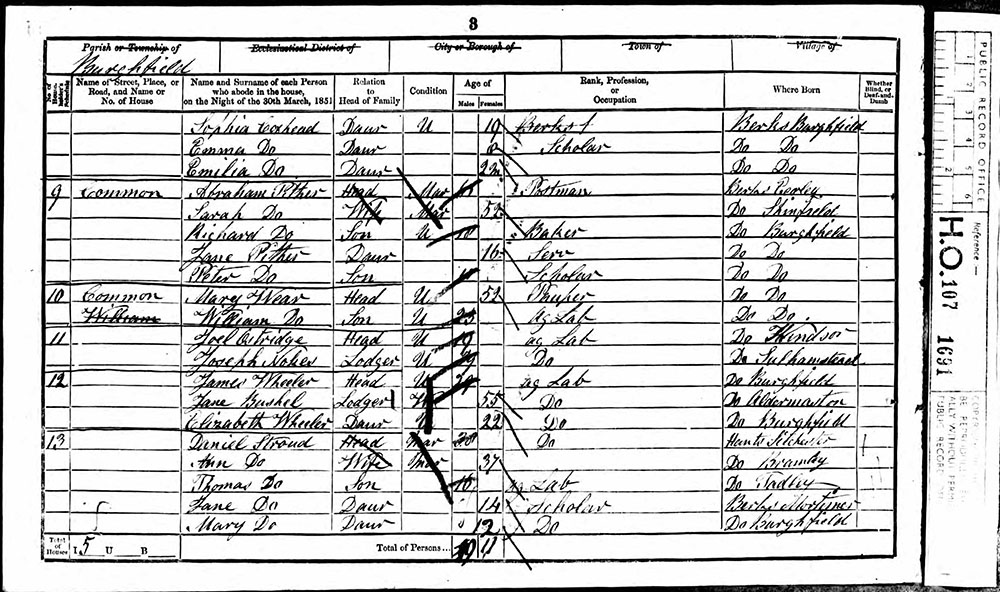 3
Parish or Township of Ecclesiastical District of City or Borough of Town of Village of
Burghfield
No. of House- holder's Schedule Name of Street, Place, or Road, and Name or No. of House Name and Surname of each Person who abode in the house, on the Night of the 30th March, 1851 Relation to Head of Family Condition Age of Males Females Rank, Profession, or Occupation Where Born Whether Blind, or Deaf-and-Dumb
Sophia Coxhead Daur U 19 Berks Berks Burghfield
Emma Do Daur Scholar Do Do
Emilia Do Daur Do Do
9 Common Abraham Pither Head Mar Postman Berks
Sarah Do Wife Mar 52 Do Shinfield
Richard Do Son U Baker Do Burghfield
Jane Pither Daur 16 Serv Do Do
Peter Do Son Scholar Do Do
10 Common Mary Wear Head U 52 Pauper Do Do
William William Do Son U 25 Ag Lab Do Do
11 Joel Head U 19 ag Lab Do Windsor
Joseph Lodger U Do Do Sulhamstead
12 James Wheeler Head U ag Lab Do Burghfield
Jane Bushel Lodger 55 Do Do Aldermaston
Elizabeth Wheeler Daur U 22 Do Do Burghfield
13 Daniel Stroud Head Mar 38 Do Hants Silchester
Ann Do Wife Mar 37 Do Bramley
Thomas Do Son ag Lab Do Tadley
Jane Do Daur 14 Scholar Berks Mortimer
Mary Do Daur 12 Do Do Burghfield
Total of Houses I 5 U B Total of Persons... 11
PUBLIC RECORD OFFICE
Reference:-
H.O. 107 1691